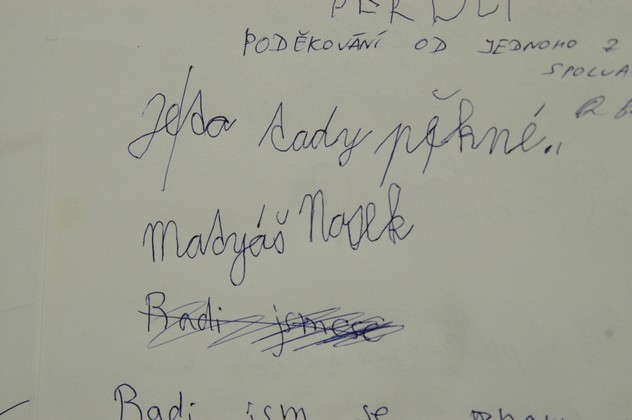 PODĚKOVÁNÍ OD JEDNOHO Z
SPOLUA
tady pěkné..
Matyáš Nosek
Radi jsmese
Radi jsm se